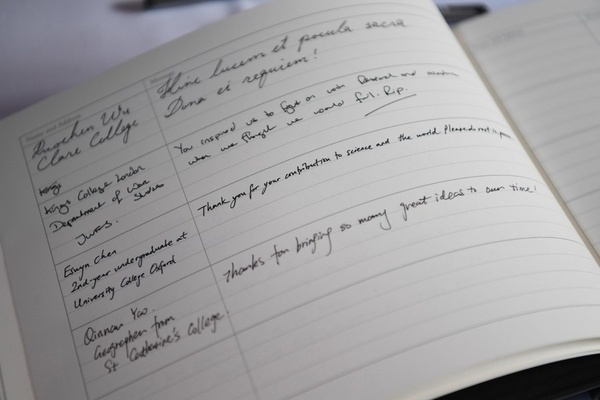 Name and Address
Ruochen Wu
Clare College
Hinc lucem et pocula sacra
Dona ei requiem!
King's College London
Department of War
Studies
You inspired us to
when we thought we would fail. R.I.P.
2nd-year undergraduate at
University College Oxford
Thank you for your contribution to science and the world. Please do rest in
Qinnan
Geographer from
St Catharine's College.
Thanks for bringing so many great ideas to our time!